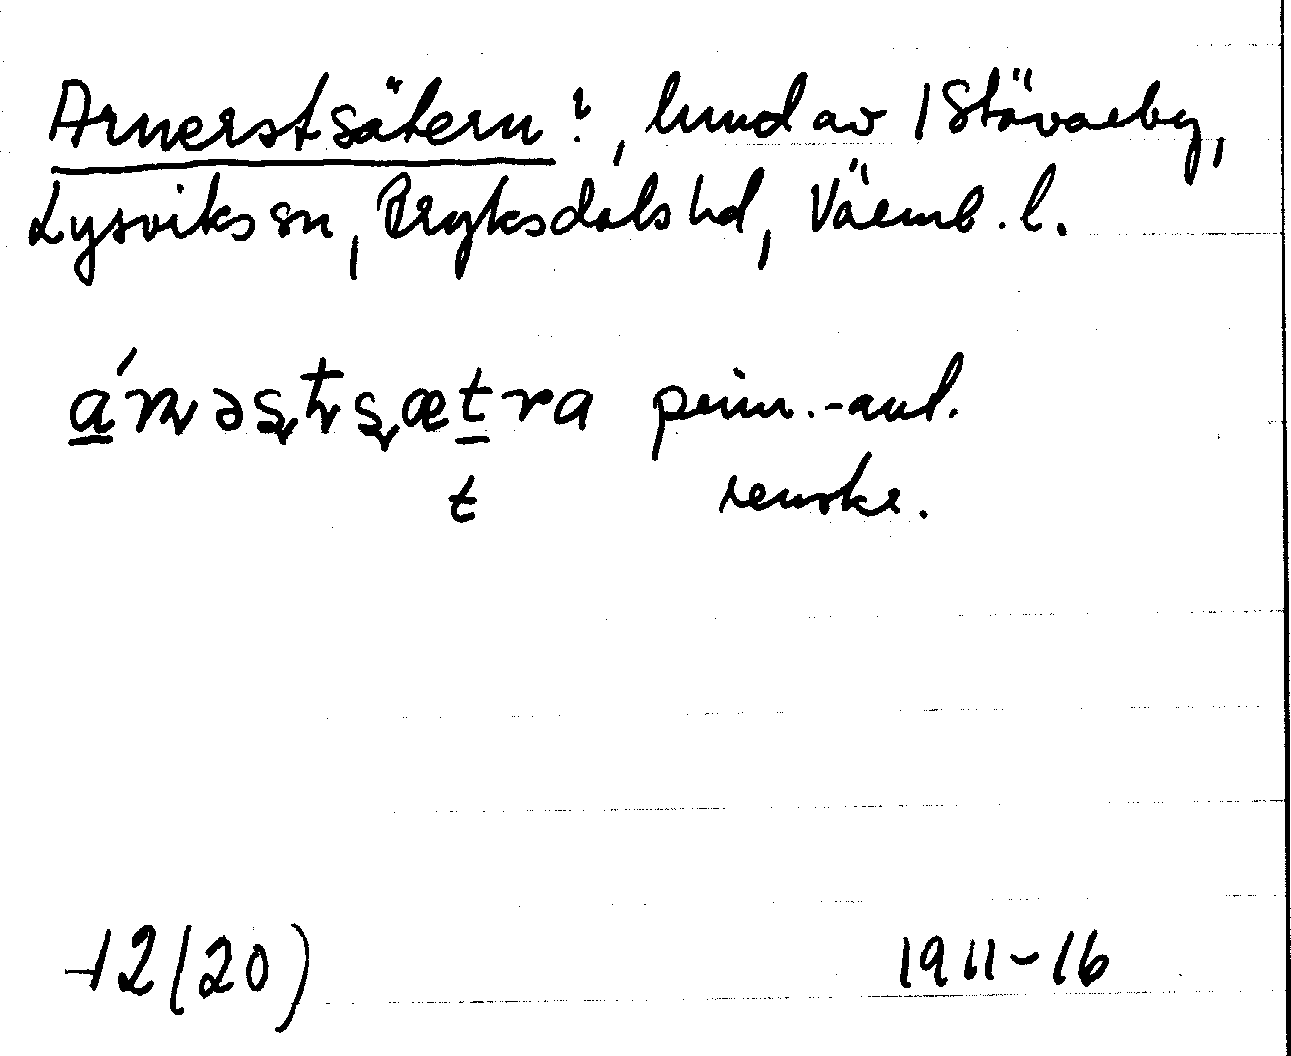 Arnerstsätern?, lund av 1 Stövarby,
Lysviks sn, Fryksdals hd, Värml. l.
a´rnəstsætra prim.-aul.
t renskr.
12(20) 1911-16